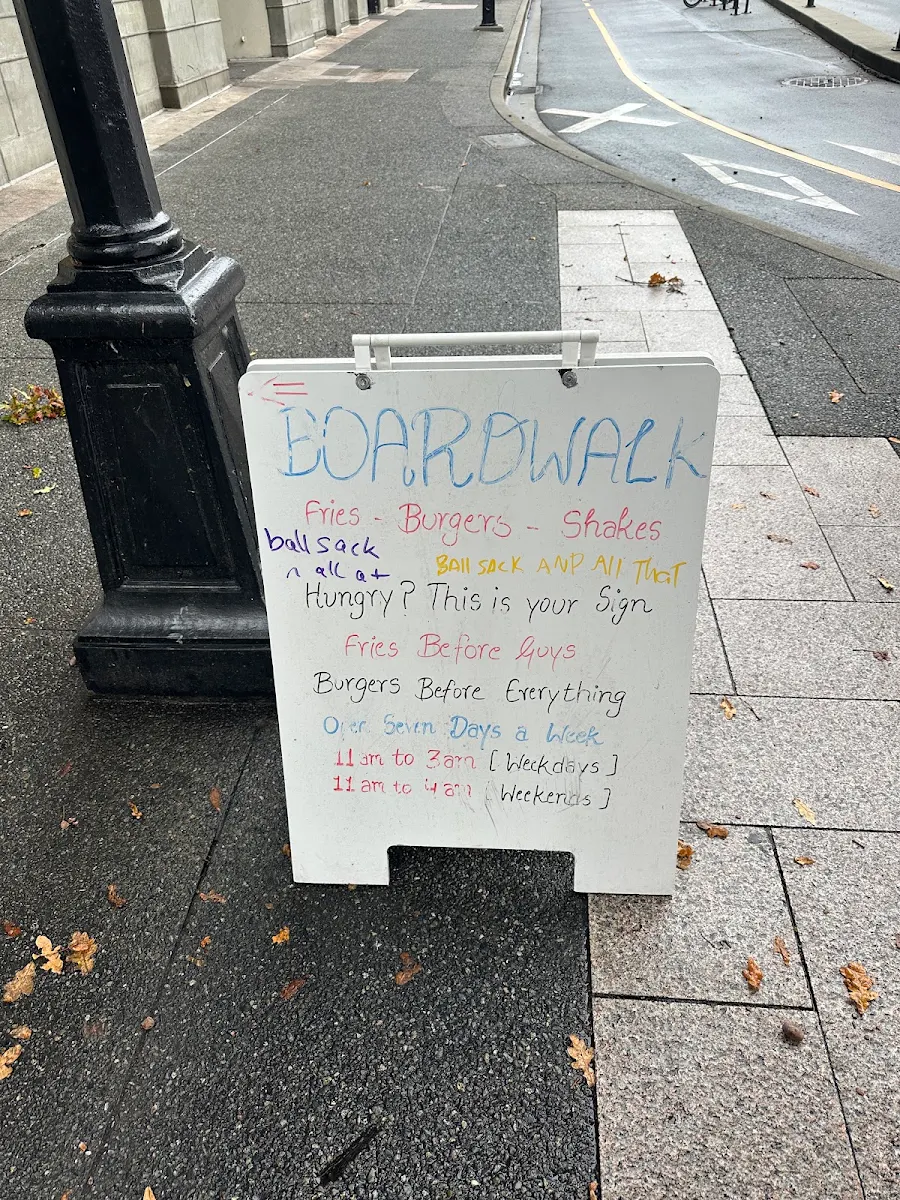 BOARDWALK
Fries - Burgers - Shakes
ball sack
n all at
BAll SACK AND All THAT
Hungry? This is your Sign
Fries Before Guys
Burgers Before Everything
Open Seven Days a Week
11 am to 3am [Weekdays]
11 am to 4am [Weekends]